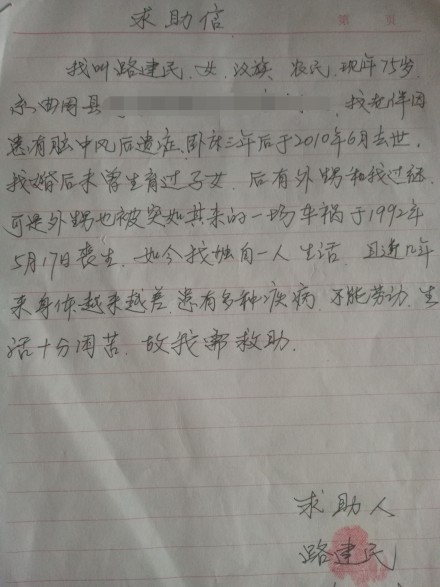 求助信
第 页
我叫路建民、女、汉族、农民、现年75岁
系曲周县 我老伴因
患有脑中风后遗症、卧床三年后于2010年6月去世，
我婚后未曾生育过子女，后有外甥和我过继，
可是外甥也被突如其来的一场车祸于1992年
5月17日丧生，如今我独自一人生活，且近几年
来身体越来越差，患有多种疾病，不能劳动，生
活十分困苦，故我需救助.
求助人
路建民